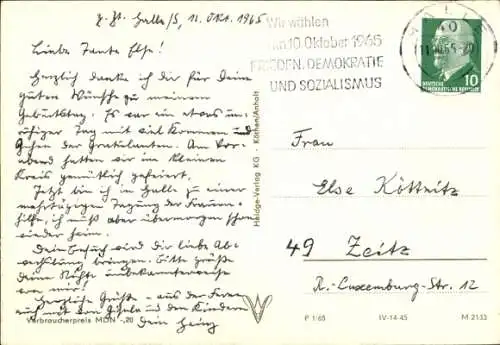 z. Zt. Halle/S, 11. Okt. 1965
Liebe Tante Else!
Herzlich danke ich dir für Deine
guten Wünsche zu meinem
Geburtstag. Es war ein etwas un-
ruhiger Tag mit viel Kommen und
Gehen der Gratulanten. Am Vor-
abend hatten wir im kleinen
Kreis gemütlich gefeiert.
Jetzt bin ich in Halle zu einer
mehrtägigen Tagung der
hilfe, ich muß aber übermorgen schon
wieder heim.
Dein Besuch wird dir liebe Ab-
wechslung bringen. Bitte grüße
deine Nichte unbekannterweise
von mir!
Herzliche Grüße - aus der Ferne
auch mit den Gisela und den Kindern
Dein Heinz
Verbraucherpreis MDN -,20
Heldge-Verlag KG - Köthen/Anhalt
Wir wählen
am 10. Oktober 1965
FRIEDEN, DEMOKRATIE
UND SOZIALISMUS
DEUTSCHE
DEMOKRATISCHE REPUBLIK
10
Frau
Else Köttnitz
49 Zeitz
R.-Luxemburg-Str. 12
P 1/65 IV-14-45 M 2133